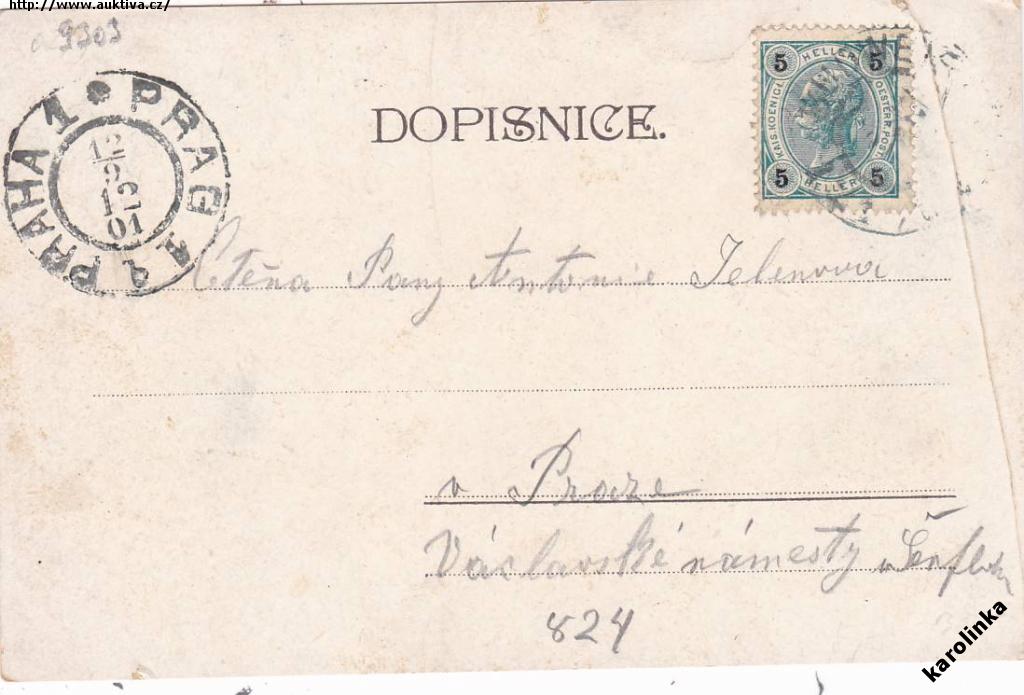 http://www.auktiva.cz/
9303
PRAHA 1 PRAG 1
12
2
01
DOPISNICE.
5 HELLER 5
KAIS. KOENIGL. OESTERR. POST.
5 HELLER 5
Ctěna Pany Antonie Jelenova
v Praze
Václavské námesty u
824
karolinka